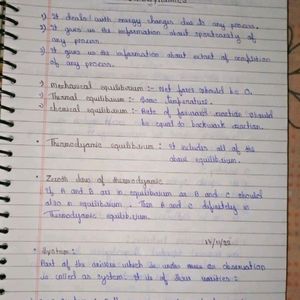 1) It deals with energy changes due to any process.
2) It gives us the information about spontaneity of
any process.
3) It gives us the information about extent of completion
of any process.
1) mechanical equilibrium :- Net force should be 0.
2) Thermal equilibrium :- Same Temperature.
3) chemical equilibrium :- Rate of forward reaction should
be equal to backward reaction.
• Thermodynamic equilibrium : It includes all of the
above equilibrium.
• Zeroth law of thermodynamic
If A and B are in equilibrium as B and C should
also in equilibrium. Then A and C definitely in
Thermodynamic equilibrium.
• System:
Part of the universe which is under observation
is called as system. It is of three